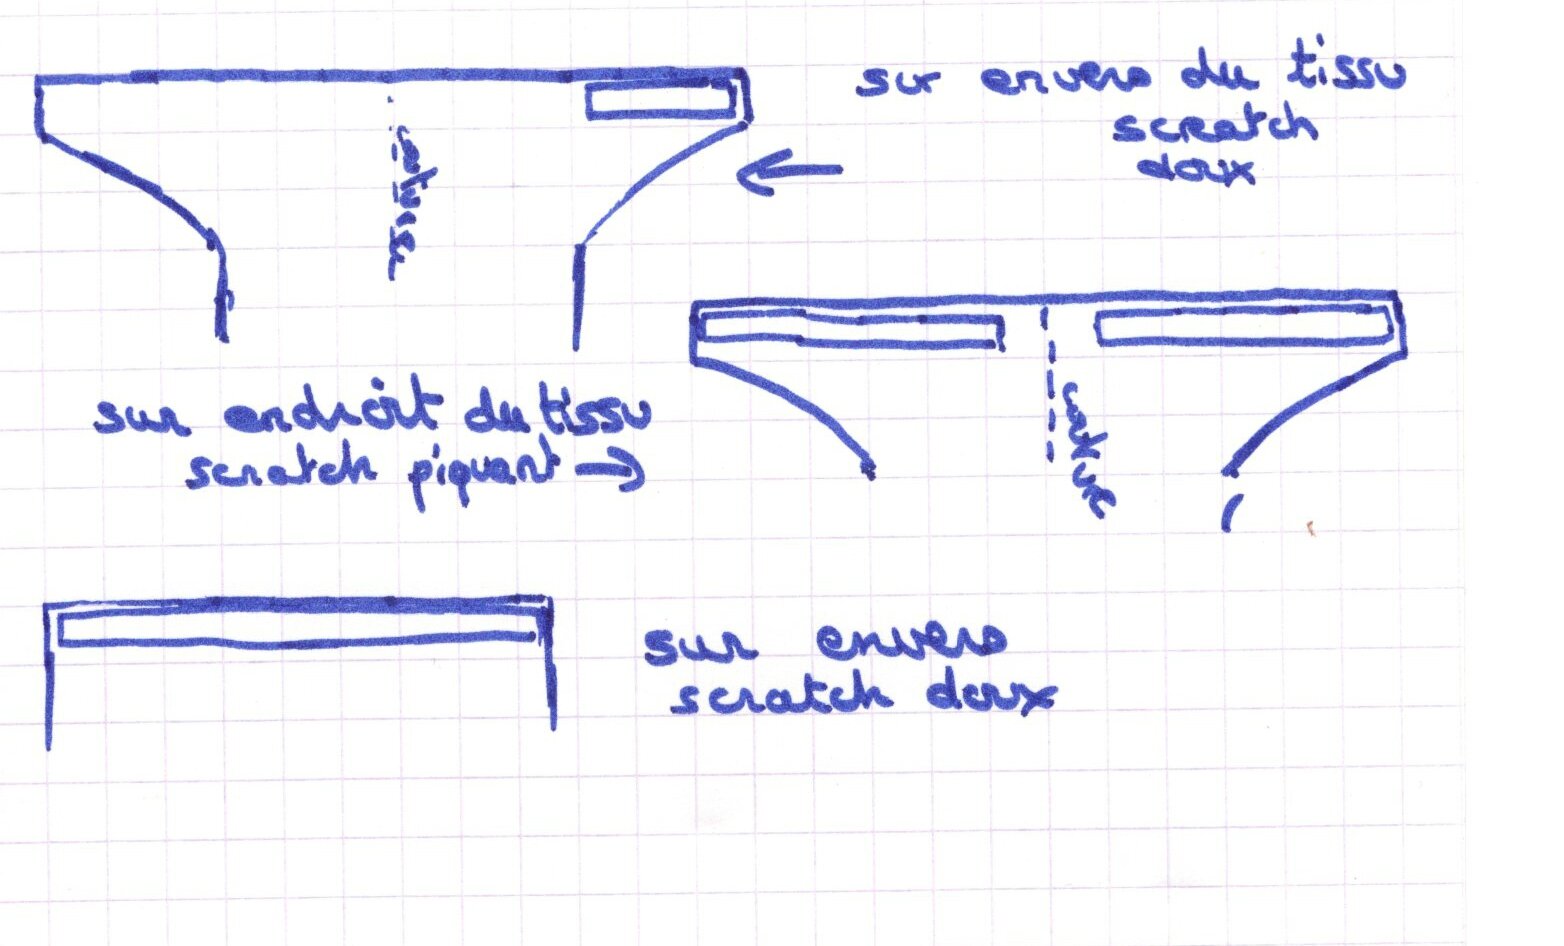 sur envers du tissu
scratch
doux
sur endroit du tissu
scratch piquant
sur envers
scratch doux